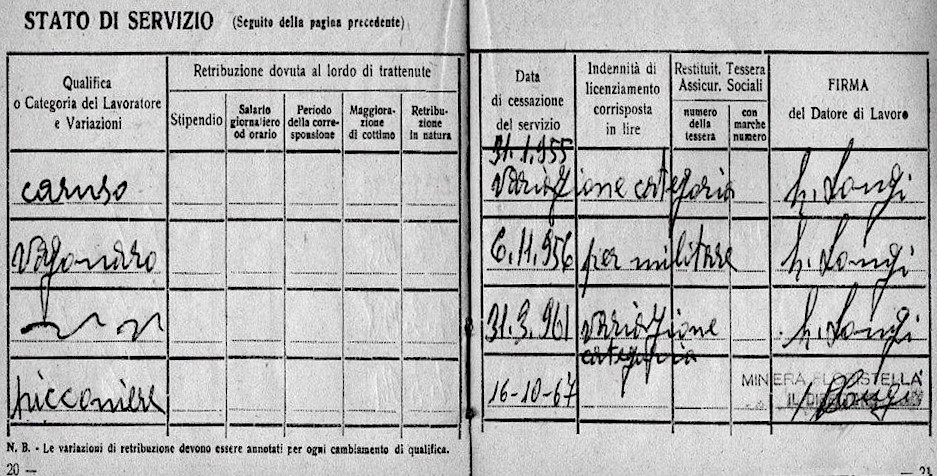 STATO DI SERVIZIO (Seguito della pagina precedente)
Qualifica
o Categoria del Lavoratore
e Variazioni
Retribuzione dovuta al lordo di trattenute
Stipendio
Salario
giornaliero
od orario
Periodo
della corre-
sponsione
Maggiora-
zione
di cottimo
Retribu-
zione
in natura
Data
di cessazione
del servizio
Indennità di
licenziamento
corrisposta
in lire
Restituit. Tessera
Assicur. Sociali
numero
della
tessera
con
marche
numero
FIRMA
del Datore di Lavoro
caruso
31.1.955
variazione categoria
h. Longi
vagonaro
6.11.956
per militare
h. Longi
31.3.961
variazione
categoria
h. Longi
picconiere
16-10-67
MINIERA FLORISTELLA
Longi
N. B. - Le variazioni di retribuzione devono essere annotati per ogni cambiamento di qualifica.
20 —